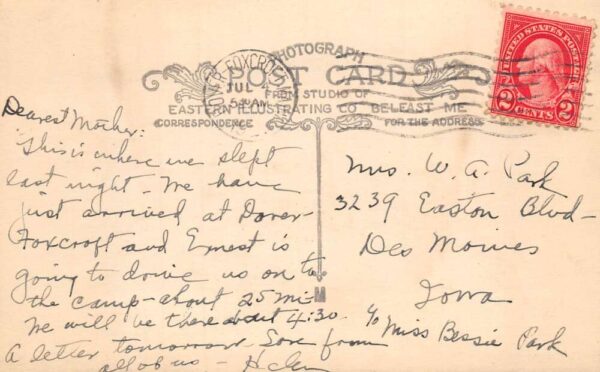 PHOTOGRAPH
POST CARD
FROM STUDIO OF
EASTERN ILLUSTRATING CO BELFAST ME
CORRESPONDENCE
FOR THE ADDRESS
FOXCROFT
JUL
UNITED STATES POSTAGE
2 CENTS 2
Dearest Mother:
This is where we slept
last night - We have
just arrived at Dover-
Foxcroft and Ernest is
going to drive us on to
the camp - about 25 mi-
We will be there about 4:30.
A letter tomorrow. Love from
all of us - Helen
M
Mrs. W. A. Park
3239 Easton Blvd-
Des Moines
Iowa
c/o Miss Bessie Park